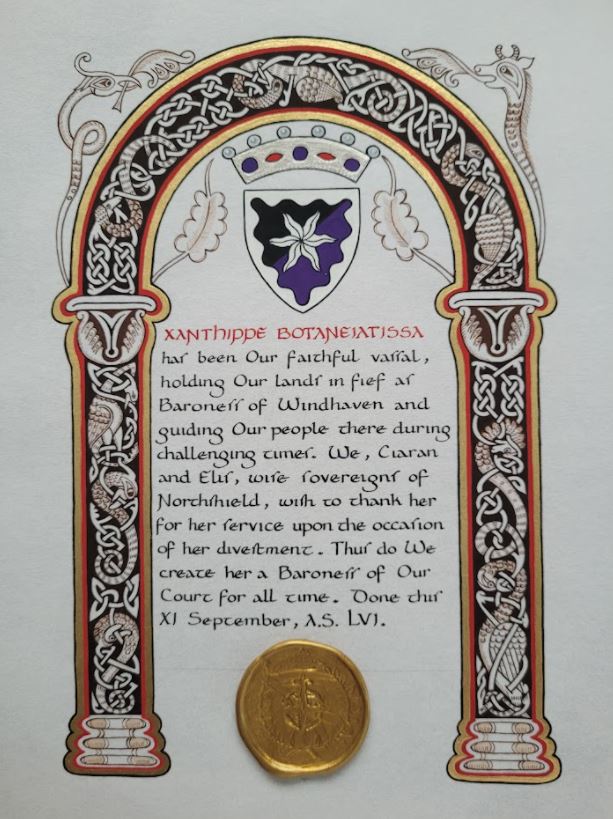 XANTHIPPE BOTANEIATISSA
has been Our faithful vassal,
holding Our lands in fief as
Baroness of Windhaven and
guiding Our people there during
challenging times. We, Ciaran
and Elis, wise sovereigns of
Northshield, wish to thank her
for her service upon the occasion
of her divestment. Thus do We
create her a Baroness of Our
Court for all time. Done this
XI September, A.S. LVI.